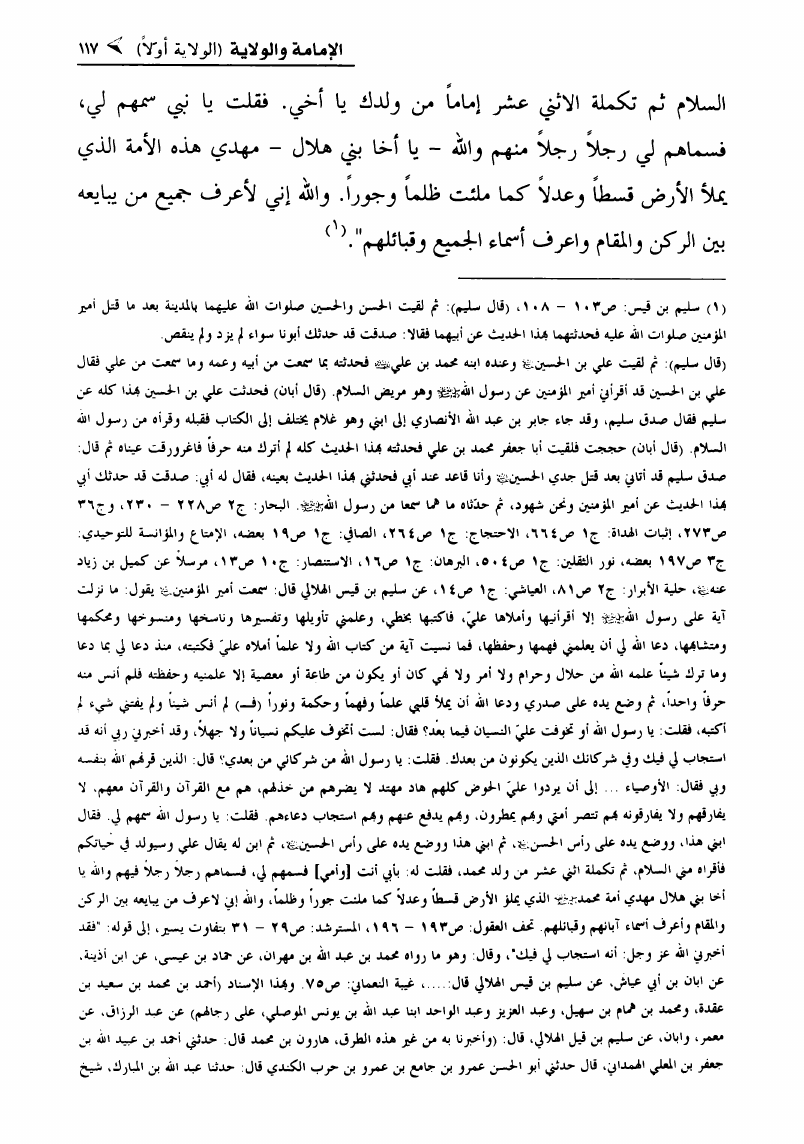 الإمامة والولاية (الولاية أولاً) ١١٧
السلام ثم تكملة الاثني عشر إماماً من ولدك يا أخي. فقلت يا نبي سمهم لي،
فسماهم لي رجلاً رجلاً منهم والله – يا أخا بني هلال – مهدي هذه الأمة الذي
يملأ الأرض قسطاً وعدلاً كما ملئت ظلماً وجوراً. والله إني لأعرف جميع من يبايعه
بين الركن والمقام واعرف أسماء الجميع وقبائلهم".(١)
(١) سليم بن قيس: ص١٠٣ – ١٠٨، (قال سليم): ثم لقيت الحسن والحسين صلوات الله عليهما بالمدينة بعد ما قتل أمير
المؤمنين صلوات الله عليه فحدثتهما بهذا الحديث عن أبيهما فقالا: صدقت قد حدثك أبونا سواء لم يزد ولم ينقص.
(قال سليم): ثم لقيت علي بن الحسين وعنده ابنه محمد بن علي فحدثته بما سمعت من أبيه وعمه وما سمعت من علي فقال
علي بن الحسين قد أقرأني أمير المؤمنين عن رسول الله وهو مريض السلام. (قال أبان) فحدثت علي بن الحسين بهذا كله عن
سليم فقال صدق سليم، وقد جاء جابر بن عبد الله الأنصاري إلى ابني وهو غلام يختلف إلى الكتاب فقبله وقرأه من رسول الله
السلام. (قال أبان) حججت فلقيت أبا جعفر محمد بن علي فحدثته بهذا الحديث كله لم أترك منه حرفاً فاغرورقت عيناه ثم قال:
صدق سليم قد أتاني بعد قتل جدي الحسين وأنا قاعد عند أبي فحدثني بهذا الحديث بعينه، فقال له أبي: صدقت قد حدثك أبي
بهذا الحديث عن أمير المؤمنين ونحن شهود، ثم حدّثاه ما هما سمعا من رسول الله. البحار: ج٢ ص٢٢٨ – ٢٣٠، وج٣٦
ص٢٧٣، إثبات الهداة: ج١ ص٦٦٤، الاحتجاج: ج١ ص٢٦٤، الصافي: ج١ ص١٩ بعضه، الإمتاع والمؤانسة للتوحيدي:
ج٣ ص١٩٧ بعضه، نور الثقلين: ج١ ص٥٠٤، البرهان: ج١ ص١٦، الاستنصار: ج١٠ ص١٣، مرسلاً عن كميل بن زياد
عنه، حلية الأبرار: ج٢ ص٨١، العياشي: ج١ ص١٤، عن سليم بن قيس الهلالي قال: سمعت أمير المؤمنين يقول: ما نزلت
آية على رسول الله إلا أقرأنيها وأملاها عليّ، فاكتبها بخطي، وعلمني تأويلها وتفسيرها وناسخها ومنسوخها ومحكمها
ومتشابهها، دعا الله لي أن يعلمني فهمها وحفظها، فما نسيت آية من كتاب الله ولا علماً أملاه عليّ فكتبته، منذ دعا لي بما دعا
وما ترك شيئاً علمه الله من حلال وحرام ولا أمر ولا نهي كان أو يكون من طاعة أو معصية إلا علمنيه وحفظته فلم أنس منه
حرفاً واحداً، ثم وضع يده على صدري ودعا الله أن يملأ قلبي علماً وفهماً وحكمة ونوراً (فـ) لم أنس شيئاً ولم يفتني شيء لم
أكتبه، فقلت: يا رسول الله أو تخوفت عليّ النسيان فيما بعد؟ فقال: لست أتخوف عليكم نسياناً ولا جهلاً، وقد أخبرني ربي أنه قد
استجاب لي فيك وفي شركائك الذين يكونون من بعدك. فقلت: يا رسول الله من شركائي من بعدي؟ قال: الذين قرنهم الله بنفسه
وبي فقال: الأوصياء ... إلى أن يردوا عليّ الحوض كلهم هاد مهتد لا يضرهم من خذلهم، هم مع القرآن والقرآن معهم، لا
يفارقهم ولا يفارقونه بهم تنتصر أمتي وبهم يمطرون، وبهم يدفع عنهم وبهم استجاب دعاءهم. فقلت: يا رسول الله سمهم لي. فقال
ابني هذا، ووضع يده على رأس الحسن، ثم ابني هذا ووضع يده على رأس الحسين، ثم ابن له يقال علي وسيولد في حياتكم
فأقراه مني السلام، ثم تكملة اثني عشر من ولد محمد، فقلت له: بأبي أنت [وأمي] فسمهم لي، فسماهم رجلاً رجلاً فيهم والله يا
أخا بني هلال مهدي أمة محمد الذي يملؤ الأرض قسطاً وعدلاً كما ملئت جوراً وظلماً، والله إني لاعرف من يبايعه بين الركن
والمقام وأعرف أسماء آبائهم وقبائلهم. تحف العقول: ص١٩٣ – ١٩٦، المسترشد: ص٢٩ – ٣١ بتفاوت يسير، إلى قوله: "فقد
أخبرني الله عز وجل: أنه استجاب لي فيك"، وقال: وهو ما رواه محمد بن عبد الله بن مهران، عن حماد بن عيسى، عن ابن أذينة،
عن ابان بن أبي عياش، عن سليم بن قيس الهلالي قال:....، غيبة النعماني: ص٧٥. وبهذا الإسناد (أحمد بن محمد بن سعيد بن
عقدة، ومحمد بن همام بن سهيل، وعبد العزيز وعبد الواحد ابنا عبد الله بن يونس الموصلي، على رجالهم) عن عبد الرزاق، عن
معمر، وابان، عن سليم بن قيل الهلالي، قال: (وأخبرنا به من غير هذه الطرق، هارون بن محمد قال: حدثني أحمد بن عبيد الله بن
جعفر بن المعلي الهمداني، قال حدثني أبو الحسن عمرو بن جامع بن عمرو بن حرب الكندي قال: حدثنا عبد الله بن المبارك، شيخ